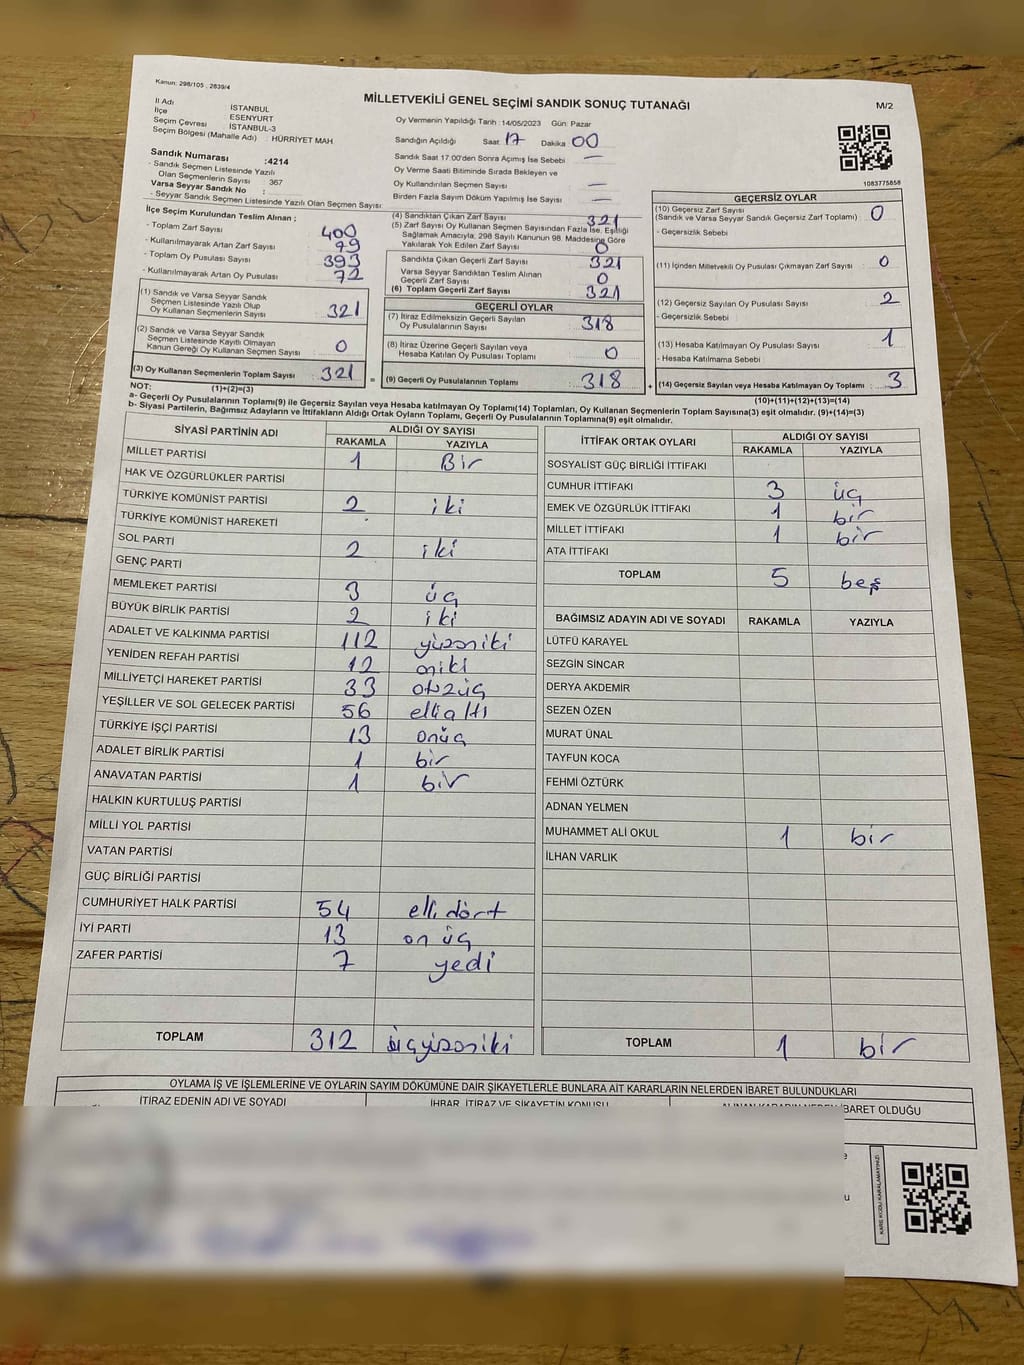 Kanun: 298/105 , 2839/4
MİLLETVEKİLİ GENEL SEÇİMİ SANDIK SONUÇ TUTANAĞI
M/2
İl Adı İSTANBUL
İlçe ESENYURT
Seçim Çevresi İSTANBUL-3
Seçim Bölgesi (Mahalle Adı) : HÜRRİYET MAH
Sandık Numarası :4214
- Sandık Seçmen Listesinde Yazılı
Olan Seçmenlerin Sayısı : 367
Varsa Seyyar Sandık No :
- Seyyar Sandık Seçmen Listesinde Yazılı Olan Seçmen Sayısı:
Oy Vermenin Yapıldığı Tarih :14/05/2023 Gün: Pazar
Sandığın Açıldığı Saat 17 Dakika 00
Sandık Saat 17:00'den Sonra Açımış İse Sebebi : —
Oy Verme Saati Bitiminde Sırada Bekleyen ve
Oy Kullandırılan Seçmen Sayısı : —
Birden Fazla Sayım Döküm Yapılmış İse Sayısı : —
1083775858
İlçe Seçim Kurulundan Teslim Alınan ;
- Toplam Zarf Sayısı : 400
- Kullanılmayarak Artan Zarf Sayısı : 79
- Toplam Oy Pusulası Sayısı : 393
- Kullanılmayarak Artan Oy Pusulası : 72
(1) Sandık ve Varsa Seyyar Sandık
Seçmen Listesinde Yazılı Olup
Oy Kullanan Seçmenlerin Sayısı : 321
(2) Sandık ve Varsa Seyyar Sandık
Seçmen Listesinde Kayıtlı Olmayan
Kanun Gereği Oy Kullanan Seçmen Sayısı : 0
(3) Oy Kullanan Seçmenlerin Toplam Sayısı : 321
(1)+(2)=(3)
(4) Sandıktan Çıkan Zarf Sayısı : 321
(5) Zarf Sayısı Oy Kullanan Seçmen Sayısından Fazla İse, Eşitliği
Sağlamak Amacıyla, 298 Sayılı Kanunun 98. Maddesine Göre
Yakılarak Yok Edilen Zarf Sayısı : 0
Sandıkta Çıkan Geçerli Zarf Sayısı : 321
Varsa Seyyar Sandıktan Teslim Alınan
Geçerli Zarf Sayısı : 0
(6) Toplam Geçerli Zarf Sayısı : 321
GEÇERLİ OYLAR
(7) İtiraz Edilmeksizin Geçerli Sayılan
Oy Pusulalarının Sayısı : 318
(8) İtiraz Üzerine Geçerli Sayılan veya
Hesaba Katılan Oy Pusulası Toplamı : 0
= (9) Geçerli Oy Pusulalarının Toplamı : 318
GEÇERSİZ OYLAR
(10) Geçersiz Zarf Sayısı
(Sandık ve Varsa Seyyar Sandık Geçersiz Zarf Toplamı) : 0
- Geçersizlik Sebebi
(11) İçinden Milletvekili Oy Pusulası Çıkmayan Zarf Sayısı : 0
(12) Geçersiz Sayılan Oy Pusulası Sayısı : 2
- Geçersizlik Sebebi :
(13) Hesaba Katılmayan Oy Pusulası Sayısı : 1
- Hesaba Katılmama Sebebi :
+ (14) Geçersiz Sayılan veya Hesaba Katılmayan Oy Toplamı : 3
(10)+(11)+(12)+(13)=(14)
NOT:
a- Geçerli Oy Pusulalarının Toplamı(9) ile Geçersiz Sayılan veya Hesaba katılmayan Oy Toplamı(14) Toplamları, Oy Kullanan Seçmenlerin Toplam Sayısına(3) eşit olmalıdır. (9)+(14)=(3)
b- Siyasi Partilerin, Bağımsız Adayların ve İttifakların Aldığı Ortak Oyların Toplamı, Geçerli Oy Pusulalarının Toplamına(9) eşit olmalıdır.
SİYASİ PARTİNİN ADI ALDIĞI OY SAYISI
RAKAMLA YAZIYLA
MİLLET PARTİSİ 1 Bir
HAK VE ÖZGÜRLÜKLER PARTİSİ
TÜRKİYE KOMÜNİST PARTİSİ 2 iki
TÜRKİYE KOMÜNİST HAREKETİ
SOL PARTİ 2 iki
GENÇ PARTİ
MEMLEKET PARTİSİ 3 üç
BÜYÜK BİRLİK PARTİSİ 2 iki
ADALET VE KALKINMA PARTİSİ 112 yüzoniki
YENİDEN REFAH PARTİSİ 12 oniki
MİLLİYETÇİ HAREKET PARTİSİ 33 otuzüç
YEŞİLLER VE SOL GELECEK PARTİSİ 56 elli altı
TÜRKİYE İŞÇİ PARTİSİ 13 onüç
ADALET BİRLİK PARTİSİ 1 bir
ANAVATAN PARTİSİ 1 bir
HALKIN KURTULUŞ PARTİSİ
MİLLİ YOL PARTİSİ
VATAN PARTİSİ
GÜÇ BİRLİĞİ PARTİSİ
CUMHURİYET HALK PARTİSİ 54 elli dört
İYİ PARTİ 13 on üç
ZAFER PARTİSİ 7 yedi
TOPLAM 312 üçyüzoniki
İTTİFAK ORTAK OYLARI ALDIĞI OY SAYISI
RAKAMLA YAZIYLA
SOSYALİST GÜÇ BİRLİĞİ İTTİFAKI
CUMHUR İTTİFAKI 3 üç
EMEK VE ÖZGÜRLÜK İTTİFAKI 1 bir
MİLLET İTTİFAKI 1 bir
ATA İTTİFAKI
TOPLAM 5 beş
BAĞIMSIZ ADAYIN ADI VE SOYADI RAKAMLA YAZIYLA
LÜTFÜ KARAYEL
SEZGİN SİNCAR
DERYA AKDEMİR
SEZEN ÖZEN
MURAT ÜNAL
TAYFUN KOCA
FEHMİ ÖZTÜRK
ADNAN YELMEN
MUHAMMET ALİ OKUL 1 bir
İLHAN VARLIK
TOPLAM 1 bir
OYLAMA İŞ VE İŞLEMLERİNE VE OYLARIN SAYIM DÖKÜMÜNE DAİR ŞİKAYETLERLE BUNLARA AİT KARARLARIN NELERDEN İBARET BULUNDUKLARI
İTİRAZ EDENİN ADI VE SOYADI İHBAR, İTİRAZ VE ŞİKAYETİN KONUSU ALINAN KARARIN NEDEN İBARET OLDUĞU
KARE KODU KARALAMAYINIZ!